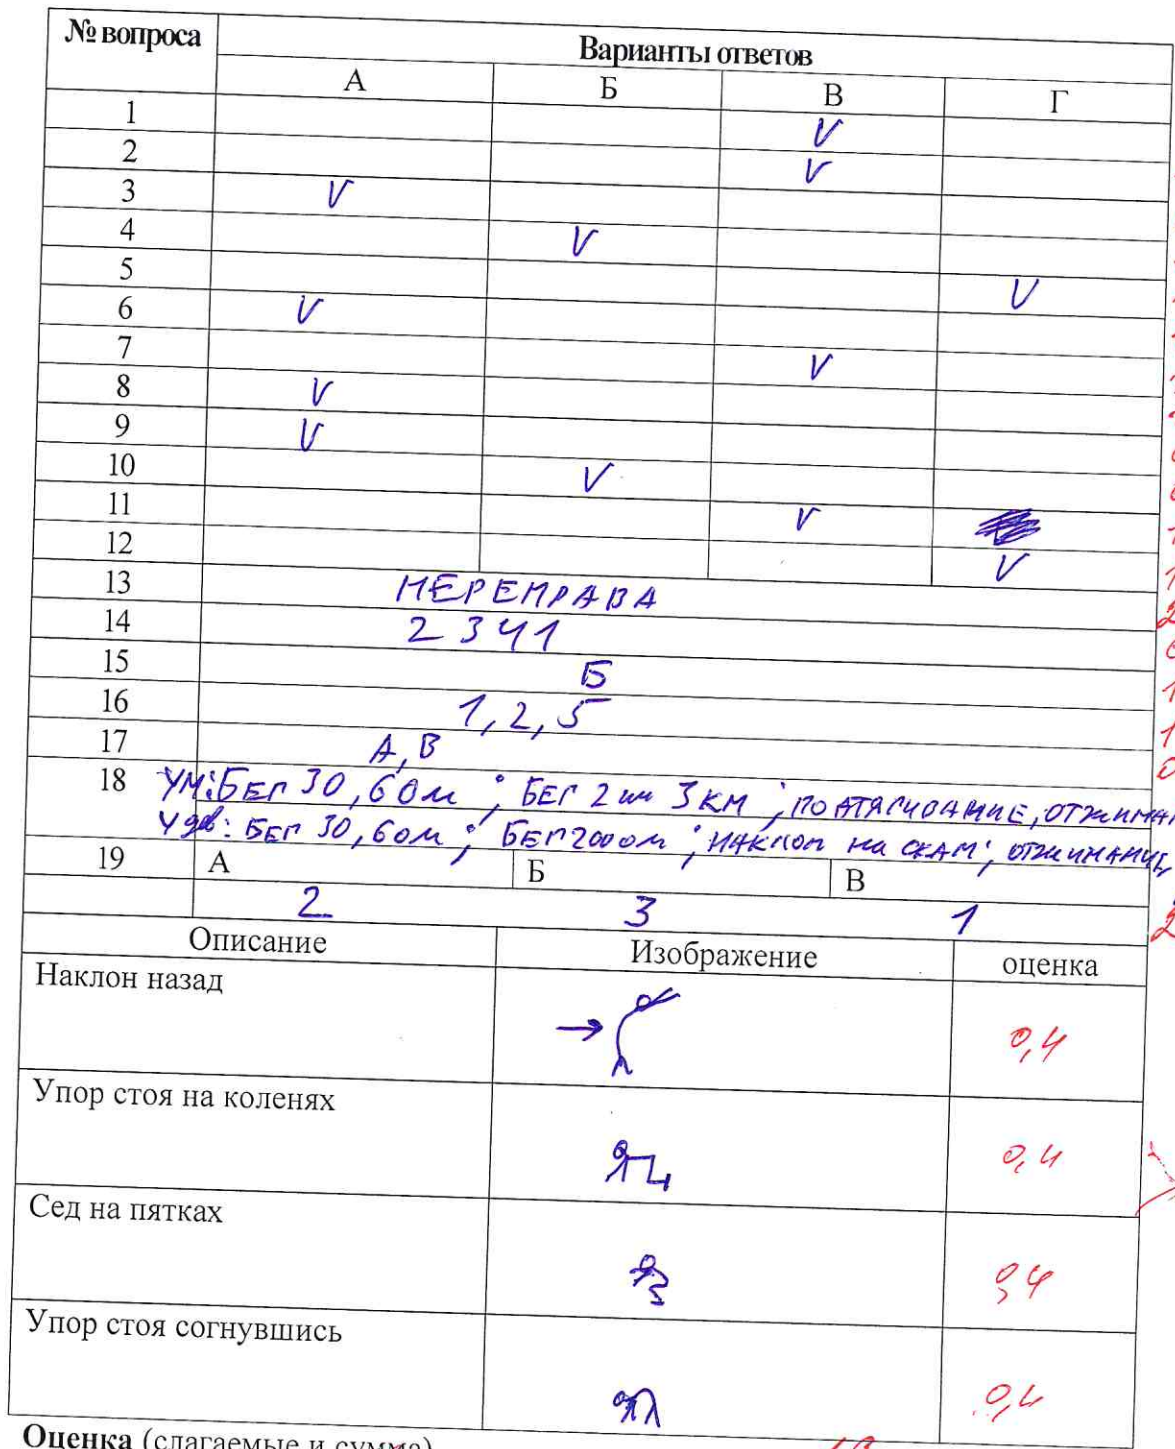 № вопроса Варианты ответов
А Б В Г
1 V
2 V
3 V
4 V
5 V
6 V
7 V
8 V
9 V
10 V
11 V
12 V
13 ПЕРЕПРАВА
14 2 3 4 1
15 Б
16 1, 2, 5
17 А, В
18 УМ: БЕГ 30, 60м ; БЕГ 2 или 3 КМ ; ПОДТЯГИВАНИЕ, ОТЖИМАН
У дев: БЕГ 30, 60м ; БЕГ 2000м ; НАКЛОН на СКАМ ; ОТЖИМАНИЕ,
19 А Б В
2 3 1
Описание Изображение оценка
Наклон назад 0,4
Упор стоя на коленях 0,4
Сед на пятках 0,4
Упор стоя согнувшись 0,4
Оценка (слагаемые и сумма)